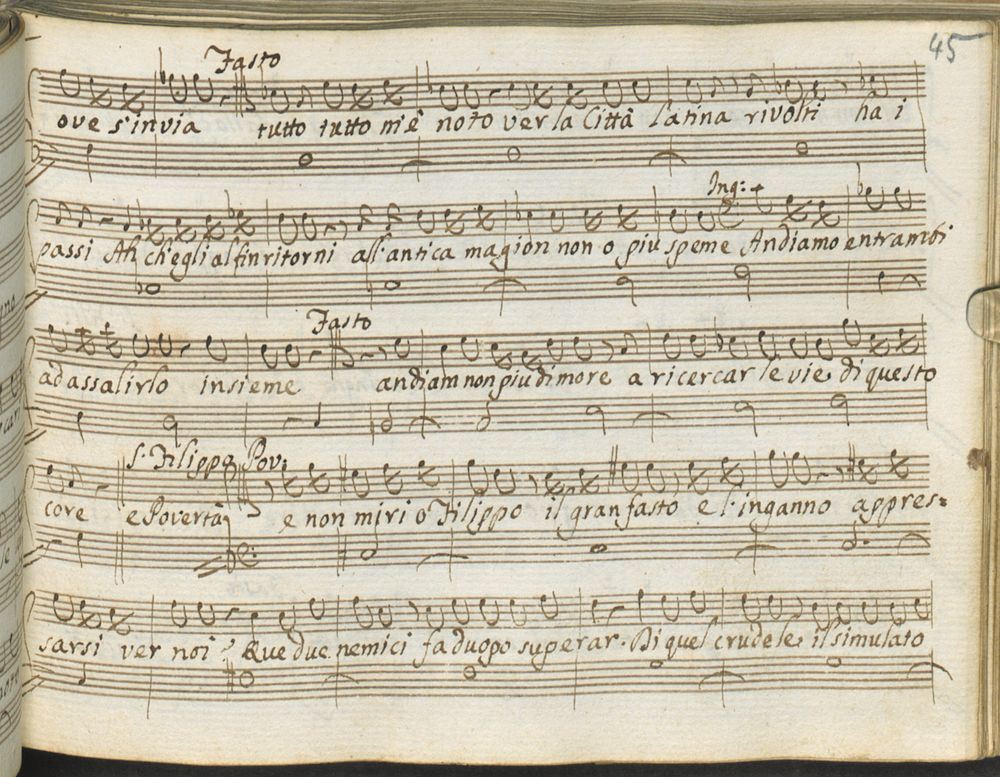 45
Fasto
ove s'invia tutto tutto m'è noto ver la Città latina rivolti ha i
Ing:
passi Ah ch'egli al fin ritorni all'antica magion non o piu speme Andiamo entrambi
Fasto
ad assalirlo insieme andiam non piu dimore a ricercar le vie di questo
S. Filippo Pov:
core e Povertà e non miri o Filippo il gran fasto e l'inganno appres=
sarsi ver noi? Que due nemici fa duopo superar. Di quel crudele il simulato